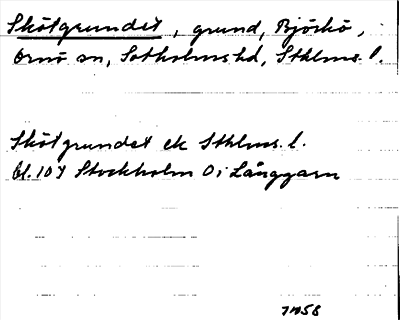 Skötgrundet, grund, Björkö,
Ornö sn, Sotholms hd, Sthlms. l.
Skötgrundet ek Sthlms. l.
bl. 107 Stockholm Oi Långgarn
1958